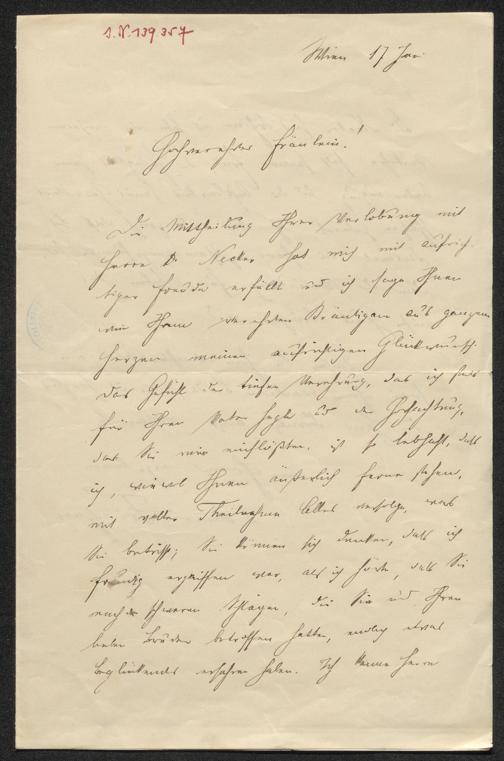 I.N. 139357
Wien 17 Jan.
Hochverehrtes Fräulein!
Die Mittheilung Ihrer Verlobung mit
Herrn Dr Necker hat mich mit aufrich-
tiger Freude erfüllt und ich sage Ihnen
wie Ihrem verehrten Bräutigam aus ganzem
Herzen meinen aufrichtigen Glückwunsch.
Das Gefühl der tiefen Verehrung, das ich stets
für Ihren Vater hegte und der Hochachtung,
das Sie mir einflößten, ist so lebhaft, daß
ich, wiewol Ihnen äußerlich ferne stehend,
mit voller Theilnahme Alles verfolge, was
Sie betrifft; Sie können sich denken, daß ich
freudig ergriffen war, als ich hörte, daß Sie
nach den schweren Schlägen, die Sie und Ihren
lieben Bruder betroffen hatten, endlich etwas
Beglückendes erfahren haben. Ich kenne Herrn